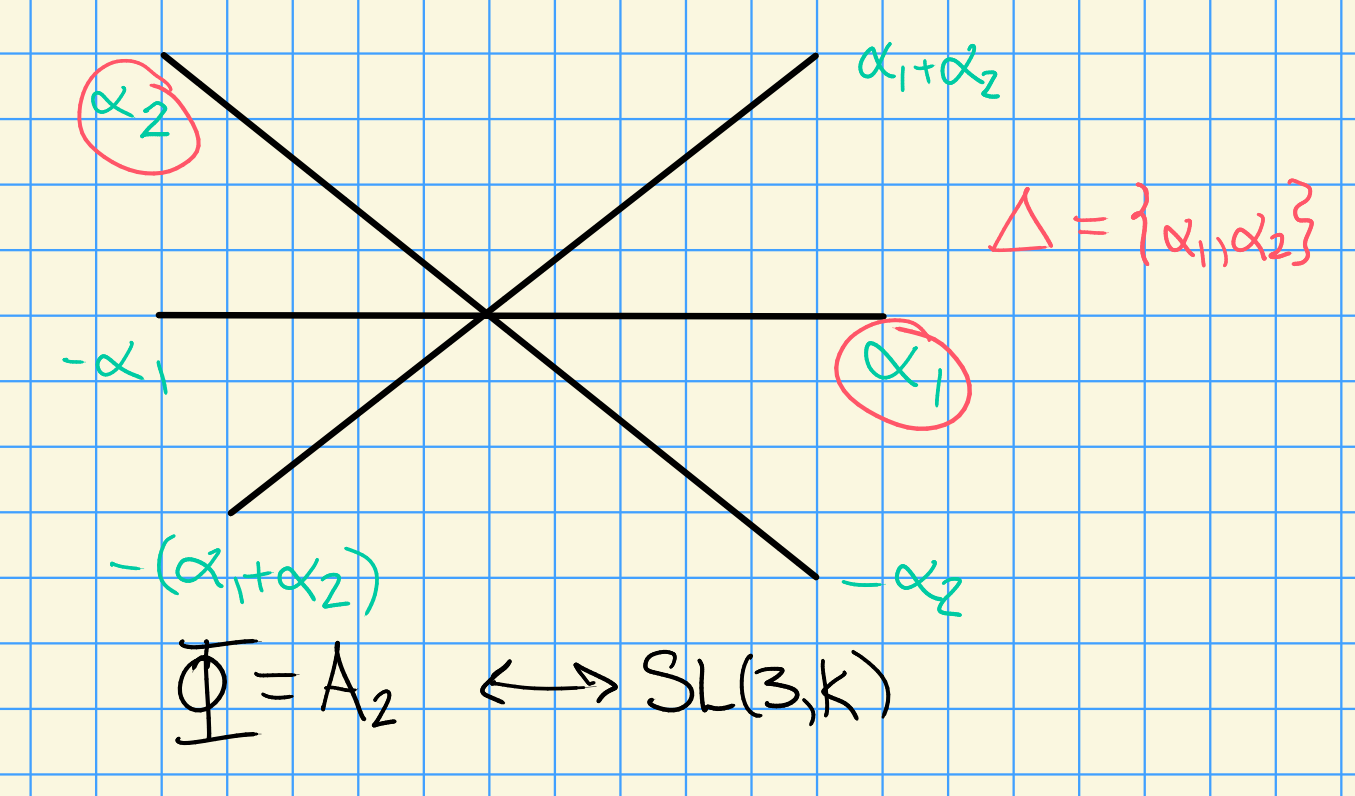 α₁+α₂
α₂
Δ = {α₁, α₂}
-α₁
α₁
-(α₁+α₂)
-α₂
Φ = A₂ ⟷ SL(3,K)